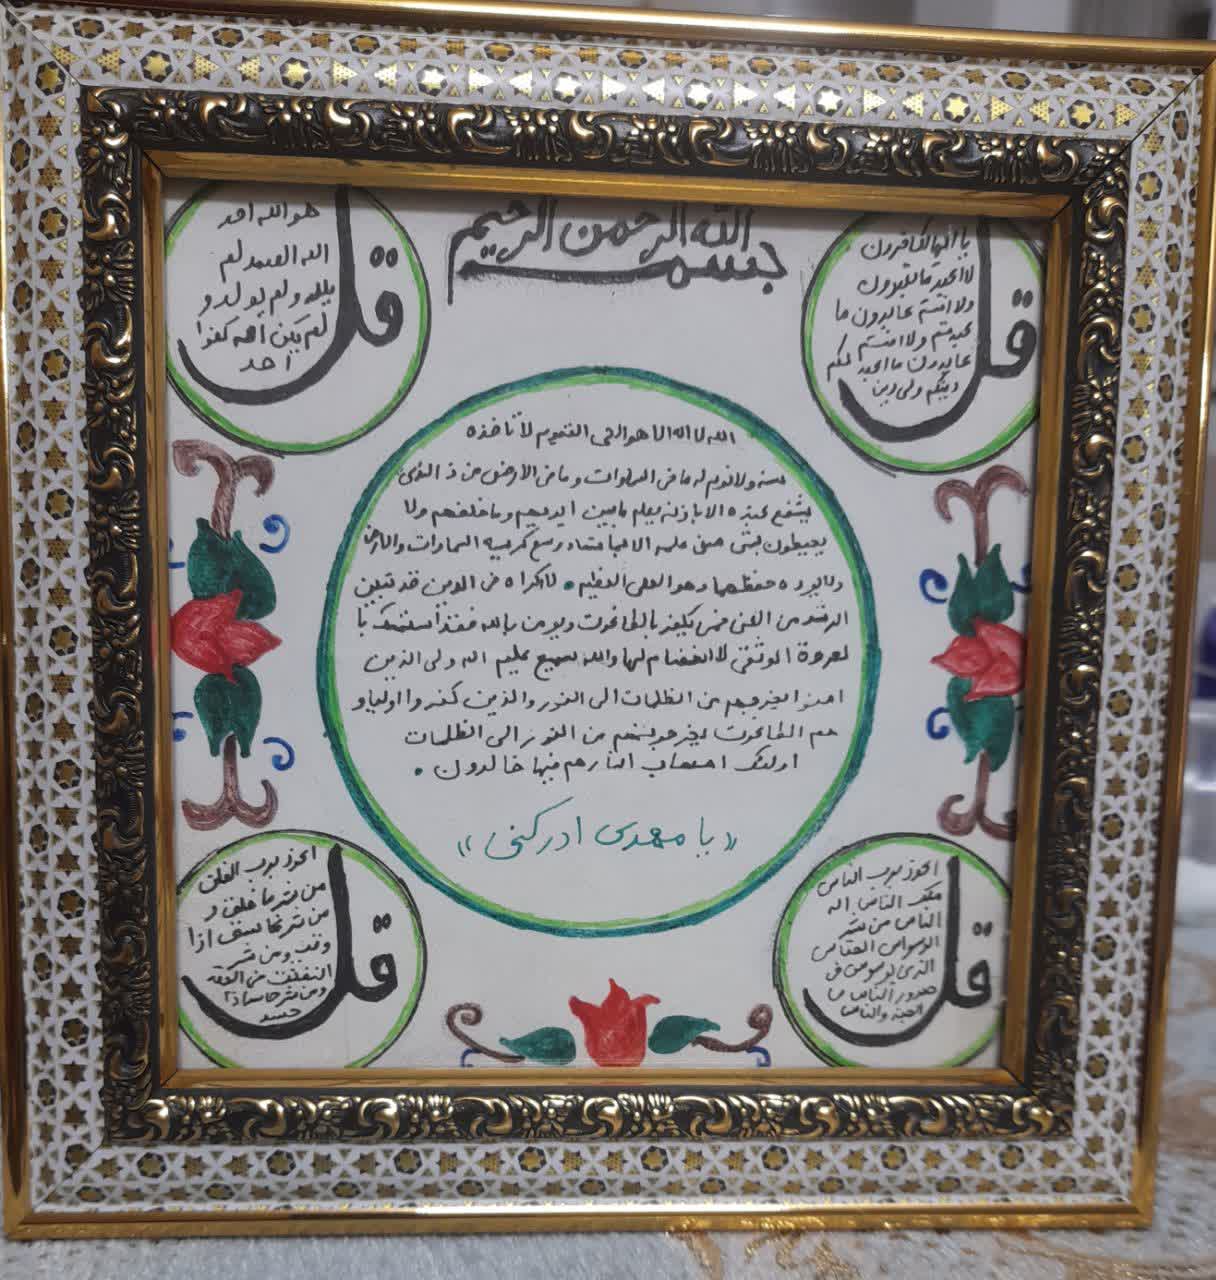 بسم الله الرحمن الرحیم
قل
یا ایها الکافرون
لا اعبد ما تعبدون
ولا انتم عابدون ما
عبدتم ولا انتم
عابدون ما اعبد لکم
دینکم ولی دین
قل
هو الله احد
الله الصمد لم
یلد و لم یولد و
لم یکن له کفوا
احد
الله لا اله الا هو الحی القیوم لا تاخذه
سنه ولا نوم له ما فی السماوات و ما فی الارض من ذ الذی
یشفع عنده الا باذنه یعلم ما بین ایدیهم وما خلفهم ولا
یحیطون بشی من علمه الا بما شاء وسع کرسیه السماوات والارض
ولا یوده حفظهما وهو العلی العظیم . لا اکراه فی الدین قد تبین
الرشد من الغی فمن یکفر بالطاغوت ویومن بالله فقد استمسک با
لعروة الوثقی لا انفصام لها والله سمیع علیم الله ولی الذین
امنوا یخرجهم من الظلمات الی النور والذین کفروا اولیاو
هم الطاغوت یخرجونهم من النور الی الظلمات
اولئک اصحاب النار هم فیها خالدون .
«یا مهدی ادرکنی»
قل
اعوذ برب الناس
ملک الناس اله
الناس من شر
الوسواس الخناس
الذی یوسوس فی
صدور الناس من
الجنه والناس
قل
اعوذ برب الفلق
من شر ما خلق و
من شر غاسق اذا
وقب ومن شر
النفثت فی العقد
ومن شر حاسد اذا
حسد